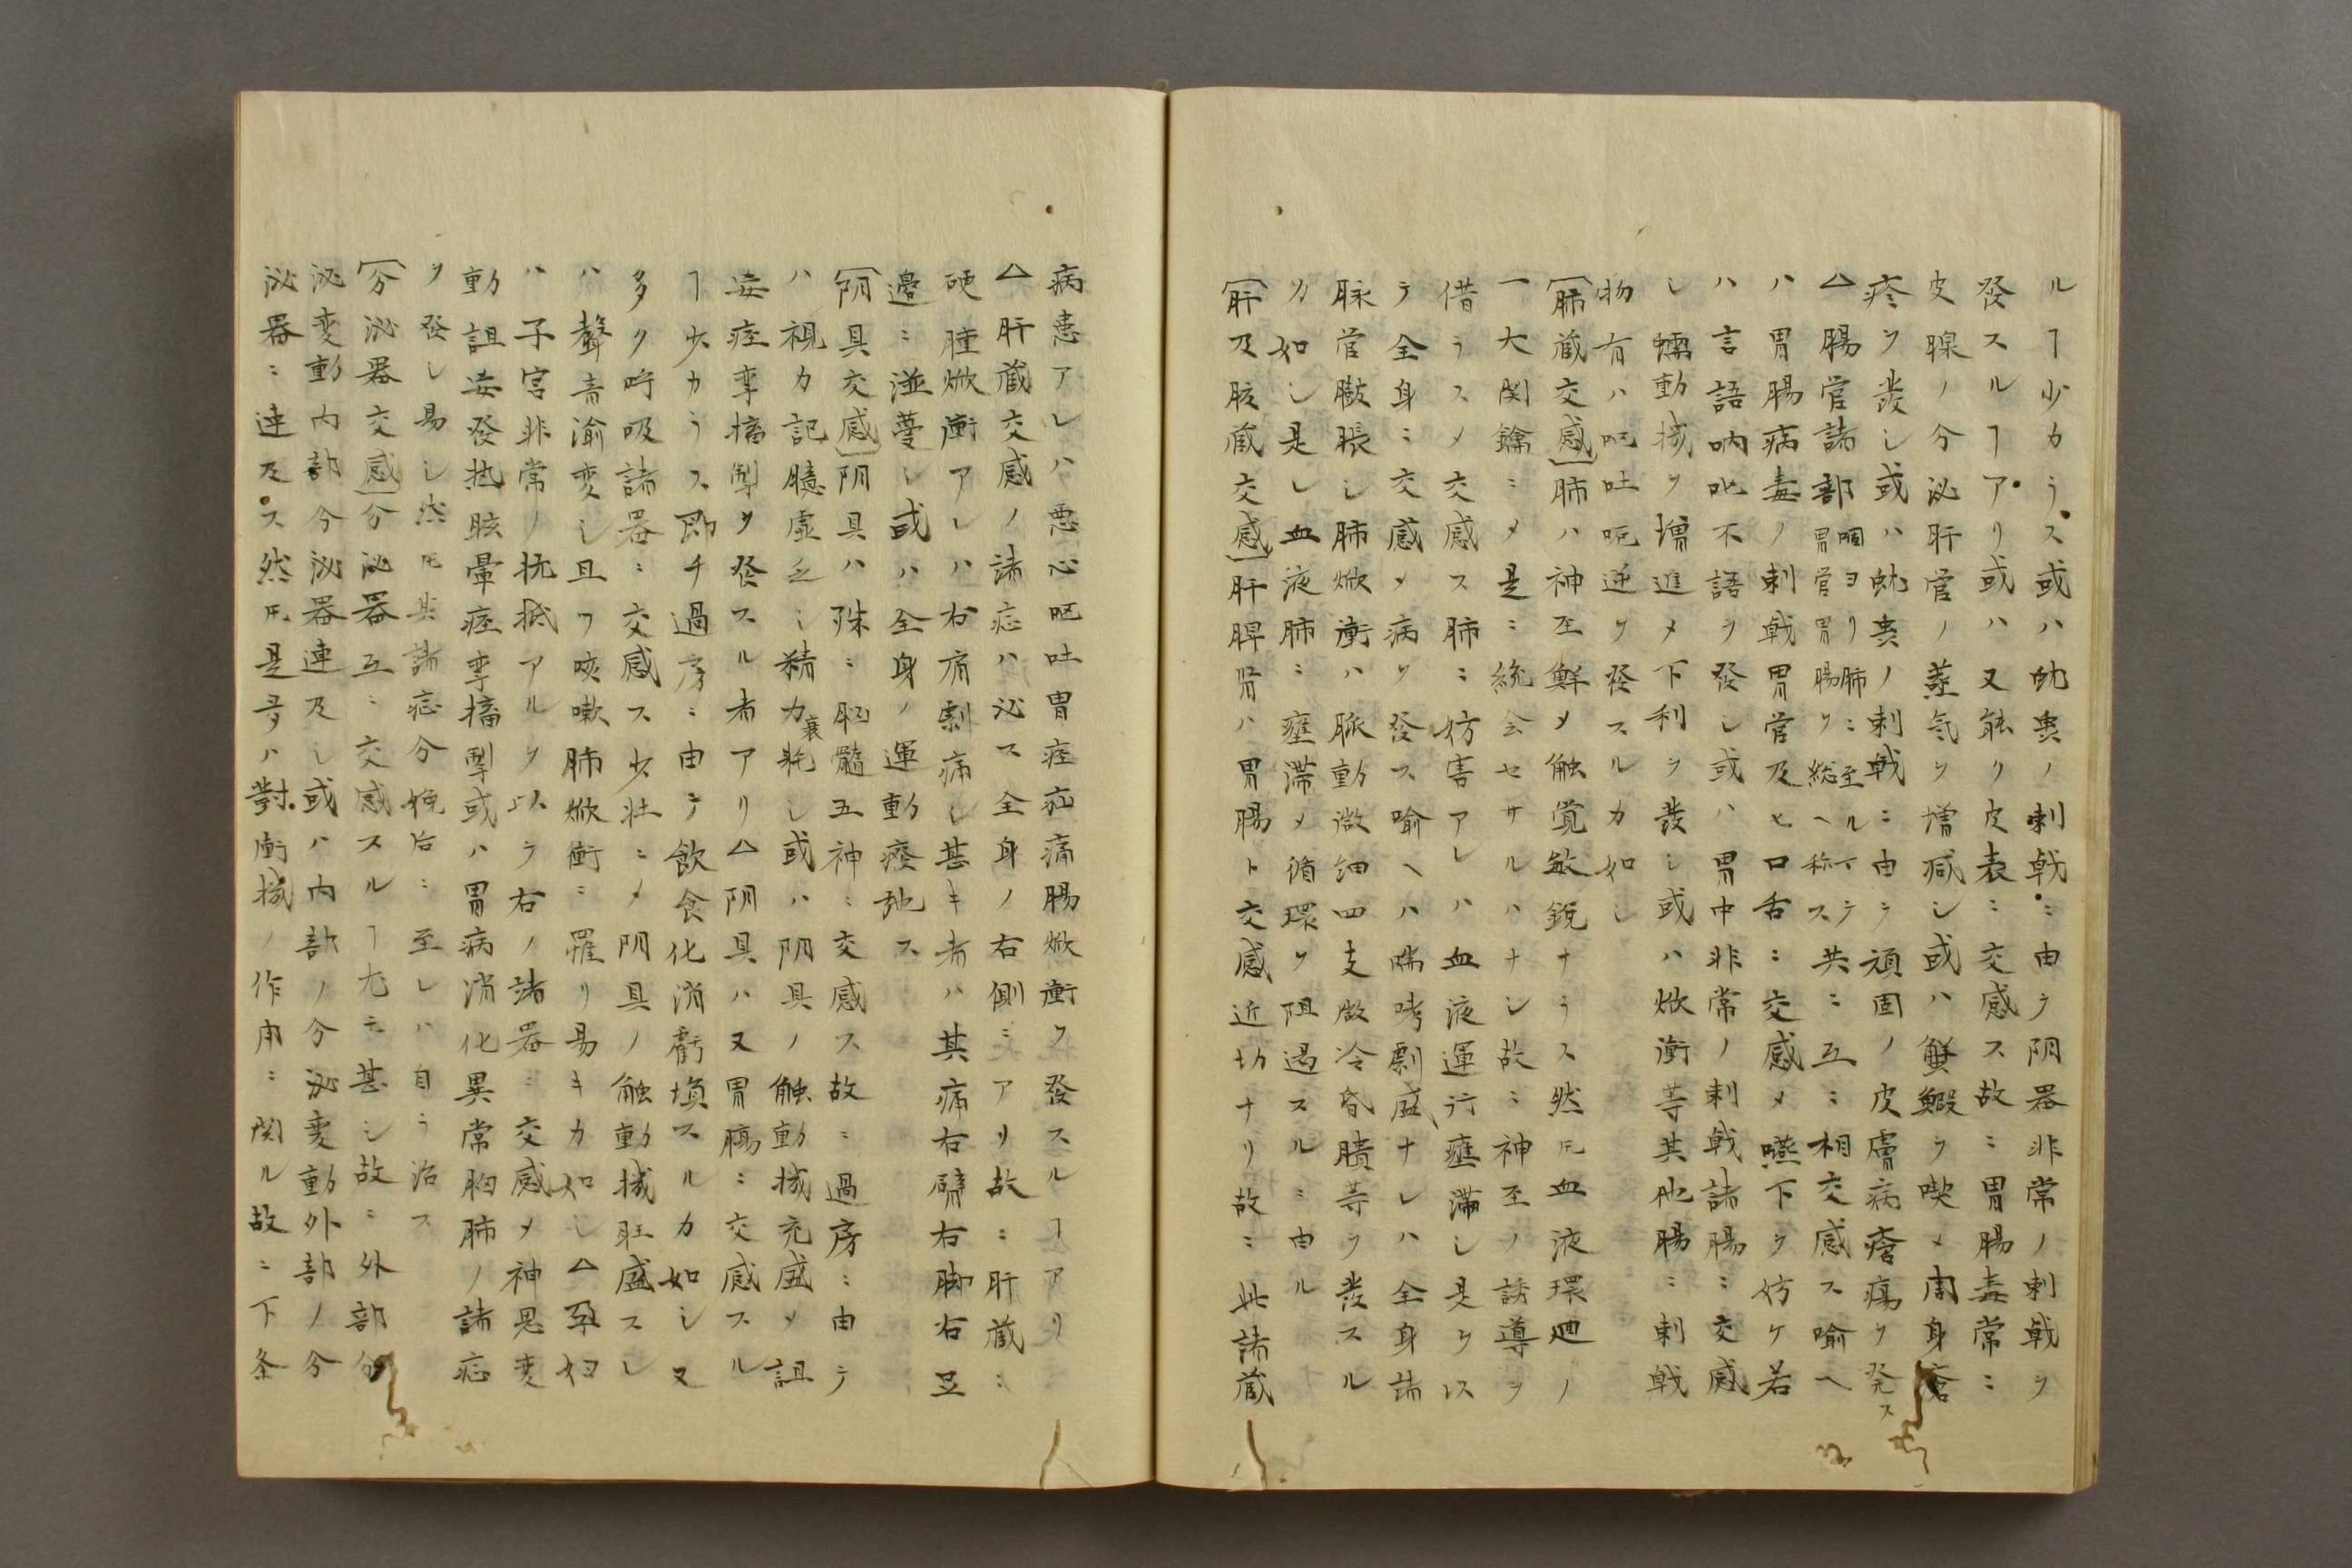 ルヿ少カラス或ハ蚘虫ノ刺戟ニ由テ阴器非常ノ刺戟ヲ
發スルヿアリ或ハ又能ク皮表ニ交感ス故ニ胃腸毒常ニ
皮腺ノ分泌肝管ノ蒸気ヲ増减シ或ハ蟹鰕ヲ喫メ周身瘡
疹ヲ發シ或ハ蚘虫ノ刺戟ニ由テ頑固ノ皮膚病瘡瘍ヲ発ス
△腸管諸部咽ヨリ肺ニ至ルヿテ胃管胃腸ヲ総ヘ称ス共ニ互ニ相交感ス喻ヘ
ハ胃腸病毒ノ刺戟胃管及ヒ口舌ニ交感メ嚥下ヲ妨ケ若
ハ言語吶吃不語ヲ發シ或ハ胃中非常ノ刺戟諸腸ニ交感
シ蠕動機ヲ増進メ下利ヲ發シ或ハ焮衝等其他腸ニ刺戟
物有ハ呕吐呃逆ヲ發スルカ如シ
肺蔵交感肺ハ神至鮮メ触覚敏鋭ナラス然𪜈血液環廻ノ
一大関鑰ニメ是ニ統会セサルハナシ故ニ神至ノ誘導ヲ
借ラスメ交感ス肺ニ妨害アレハ血液運行壅滞シ是ヲ以
テ全身ニ交感メ病ヲ發ス喻ヘハ喘哮劇甚ナレハ全身諸
脉管皷脹シ肺焮衝ハ脈動微細四支厥冷昏瞶等ヲ發スル
カ如シ是レ血液肺ニ壅滞メ循環ヲ阻遏スルニ由ル
肝及胲蔵交感肝脾肾ハ胃腸ト交感近切ナリ故ニ此諸蔵
病患アレハ悪心呕吐胃痙疝痛腸焮衝ヲ發スルヿアリ
△肝蔵交感ノ諸症ハ必ス全身ノ右側ニアリ故ニ肝蔵ニ
硬腫焮衝アレハ右肩劇痛シ甚キ者ハ其痛右臂右脚右足
邉ニ溢蔓シ或ハ全身ノ運動癈弛ス
阴具交感阴具ハ殊ニ脳髓五神ニ交感ス故ニ過房ニ由テ
ハ視力記臆虚乏シ精力衰耗シ或ハ阴具ノ触動機充盛メ詛
妄痙攣搐掣ヲ發スル者アリ△阴具ハ又胃腸ニ交感スル
ヿ少カラス即チ過房ニ由テ飲食化消虧損スルカ如シ又
多ク呼吸諸器ニ交感ス少壮ニメ阴具ノ触動機旺盛スレ
ハ聲音渝変シ且ツ咳嗽肺焮衝ニ罹リ易キカ如シ△孕妇
ハ子宮非常ノ抗抵アルヲ以テ右ノ諸器ニ交感メ神思変
動詛妄發𤍠眩暈痙攣搐掣或ハ胃病消化異常胸肺ノ諸症
ヲ發シ易シ然𪜈其諸症分娩后ニ至レハ自ラ治ス
分泌器交感分泌器互ニ交感スルヿ尤モ甚シ故ニ外部分
泌変動内部分泌器連及シ或ハ内部ノ分泌変動外部ノ分
泌器ニ連及ス然𪜈是多ハ對衝機ノ作用ニ関ル故ニ下条